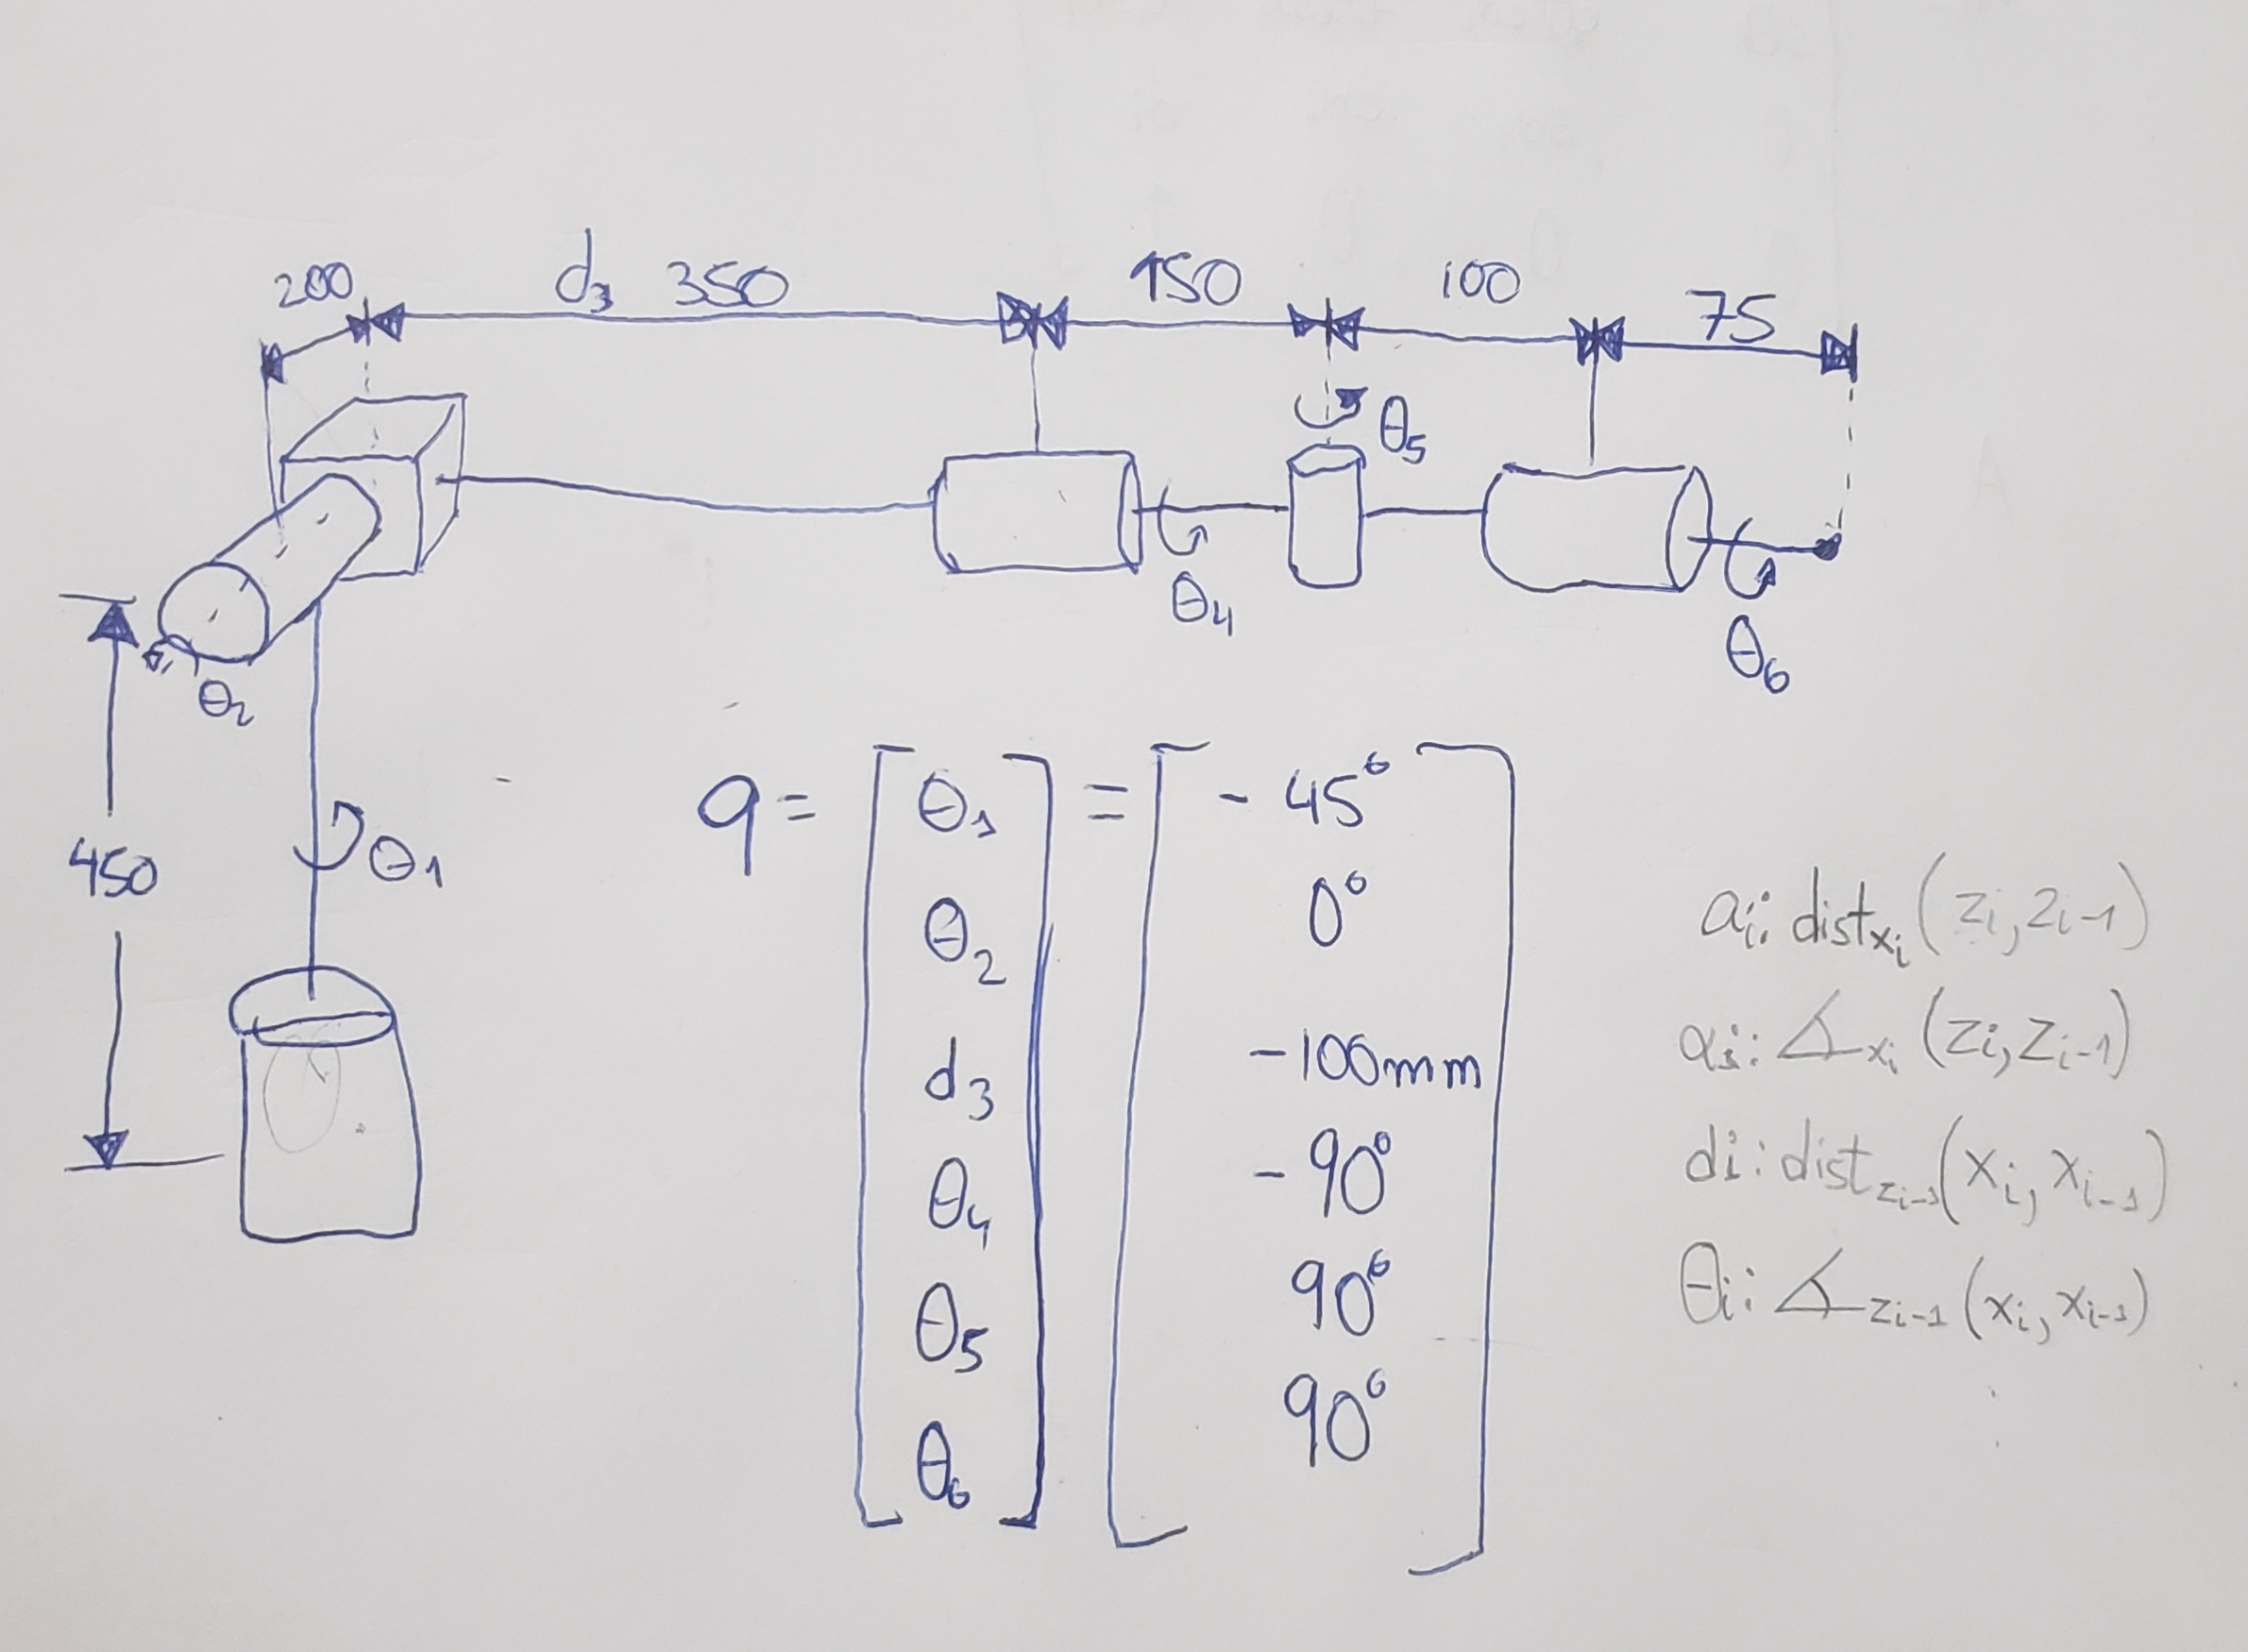 200 d₃ 350 150 100 75
θ₅
θ₄
θ₆
θ₂
450
θ₁
q = [ θ₁ = [ -45°
θ₂ 0°
d₃ -100mm
θ₄ -90°
θ₅ 90°
θ₆ ] 90° ]
aᵢ: dist_xᵢ (zᵢ, zᵢ₋₁)
αᵢ: ∡_xᵢ (zᵢ, zᵢ₋₁)
dᵢ: dist_zᵢ₋₁ (xᵢ, xᵢ₋₁)
θᵢ: ∡_zᵢ₋₁ (xᵢ, xᵢ₋₁)